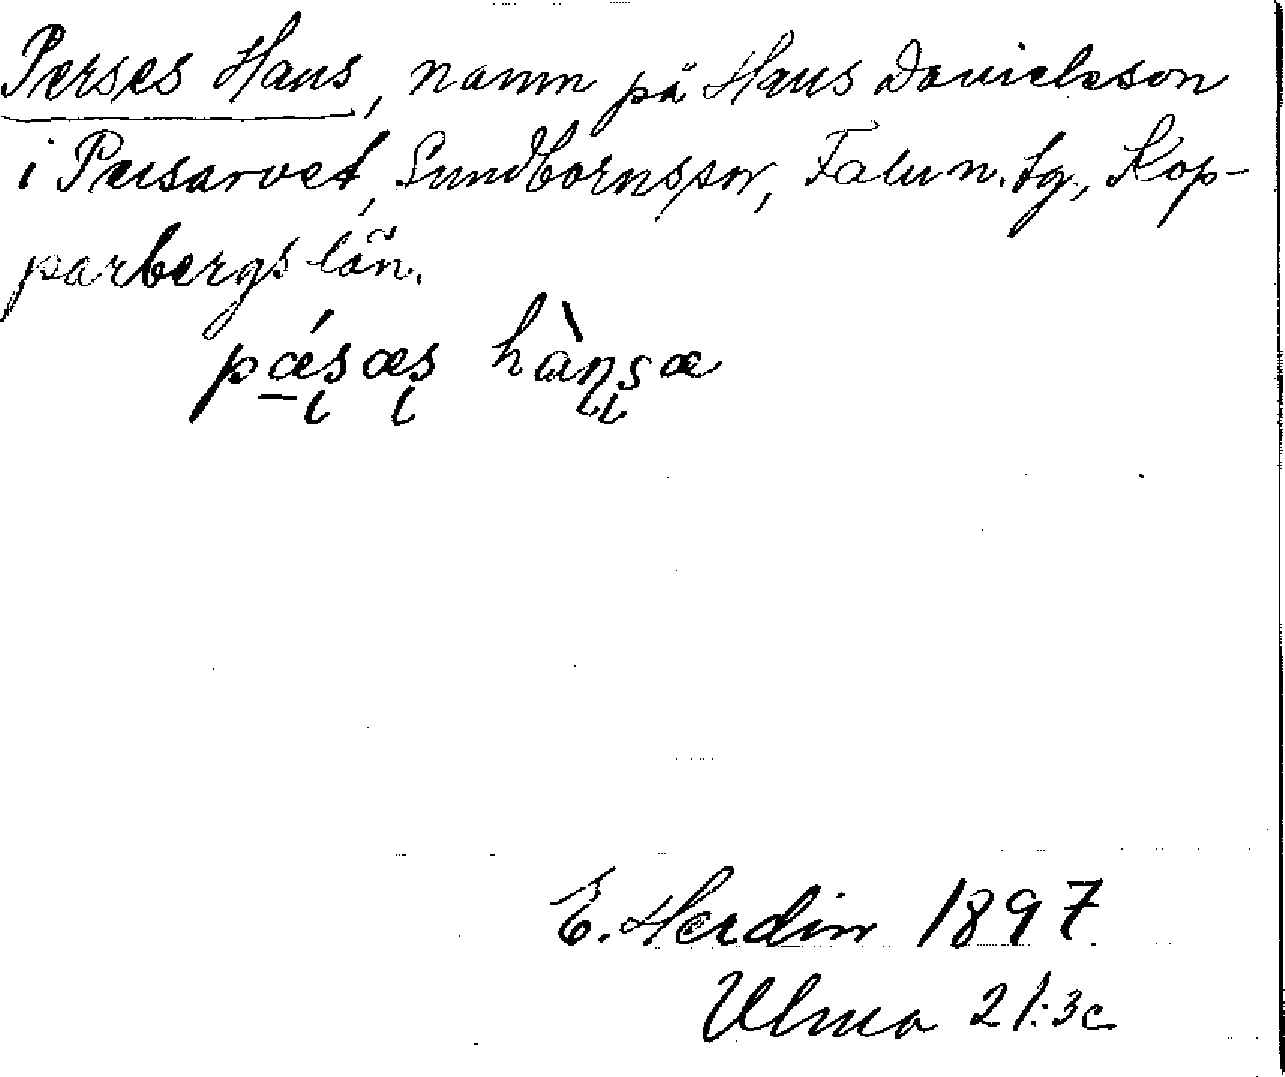 Perses Hans, namn på Hans Danielsson
i Persarvet, Sundbornssn, Falun. tg., Kop-
parbergs län.
pǽsæs hànsæ
E. Herdin 1897.
Ulma 21:3c